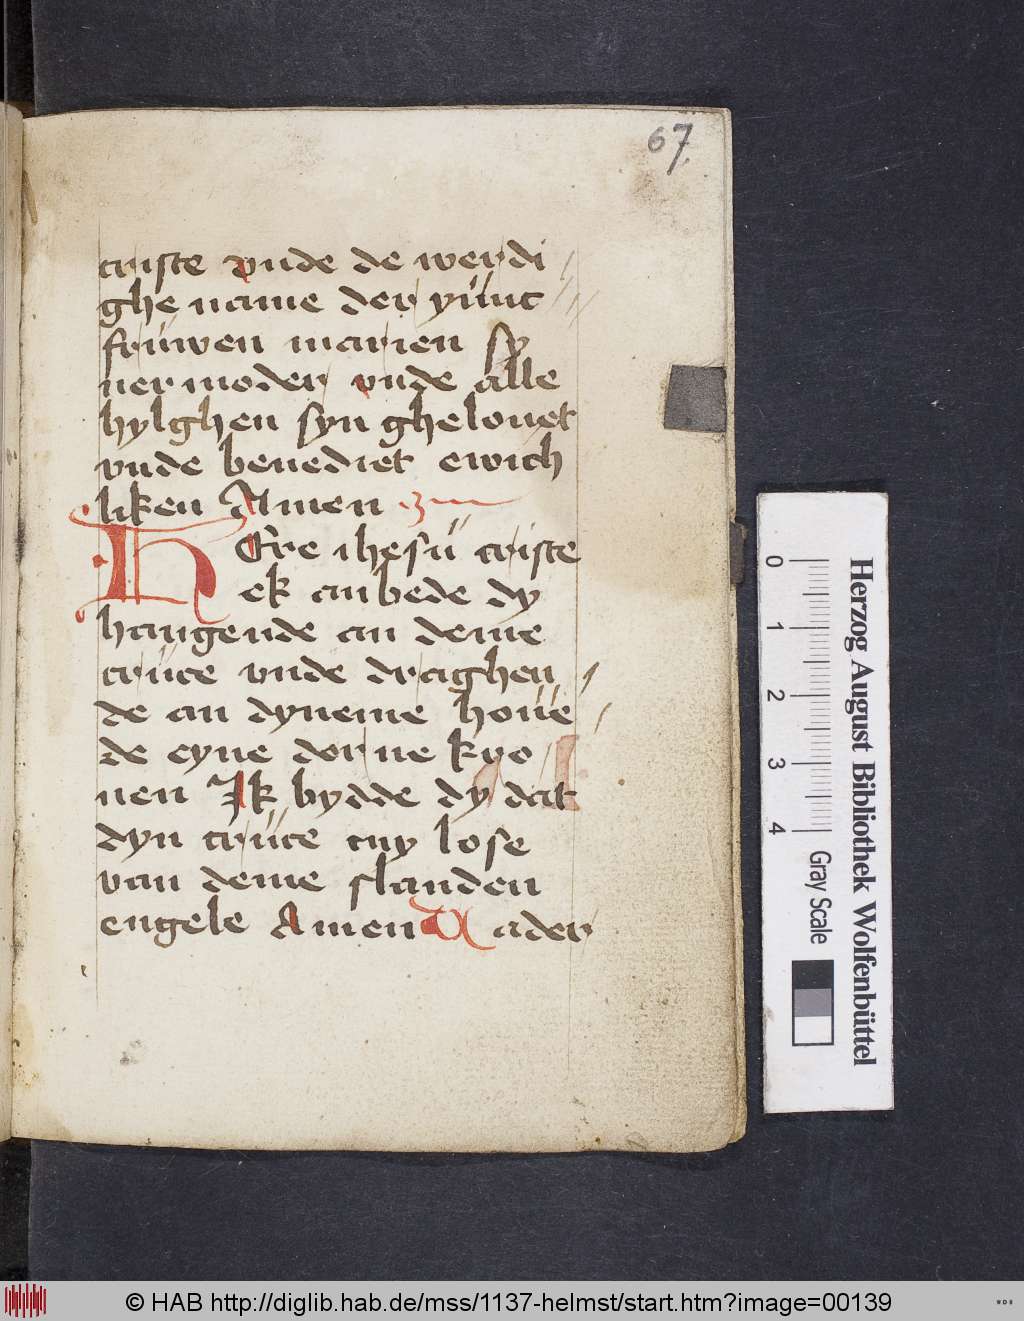 67
criste vnde de werdi
ghe name der yůnc
frůwen marien sy
ner moder vnde alle
hylghen syn ghelouet
vnde benediet ewich
liken Amen
HEre ihesů criste
ek anbede dy
hangende an deme
crůce vnde draghen
de an dyneme hoůe
de eyne dorne kro
nen Ik bydde dy dat
dyn crůce my lose
van deme slanden
engele Amen Vader
Herzog August Bibliothek Wolfenbüttel
0 1 2 3 4 Gray Scale
© HAB http://diglib.hab.de/mss/1137-helmst/start.htm?image=00139